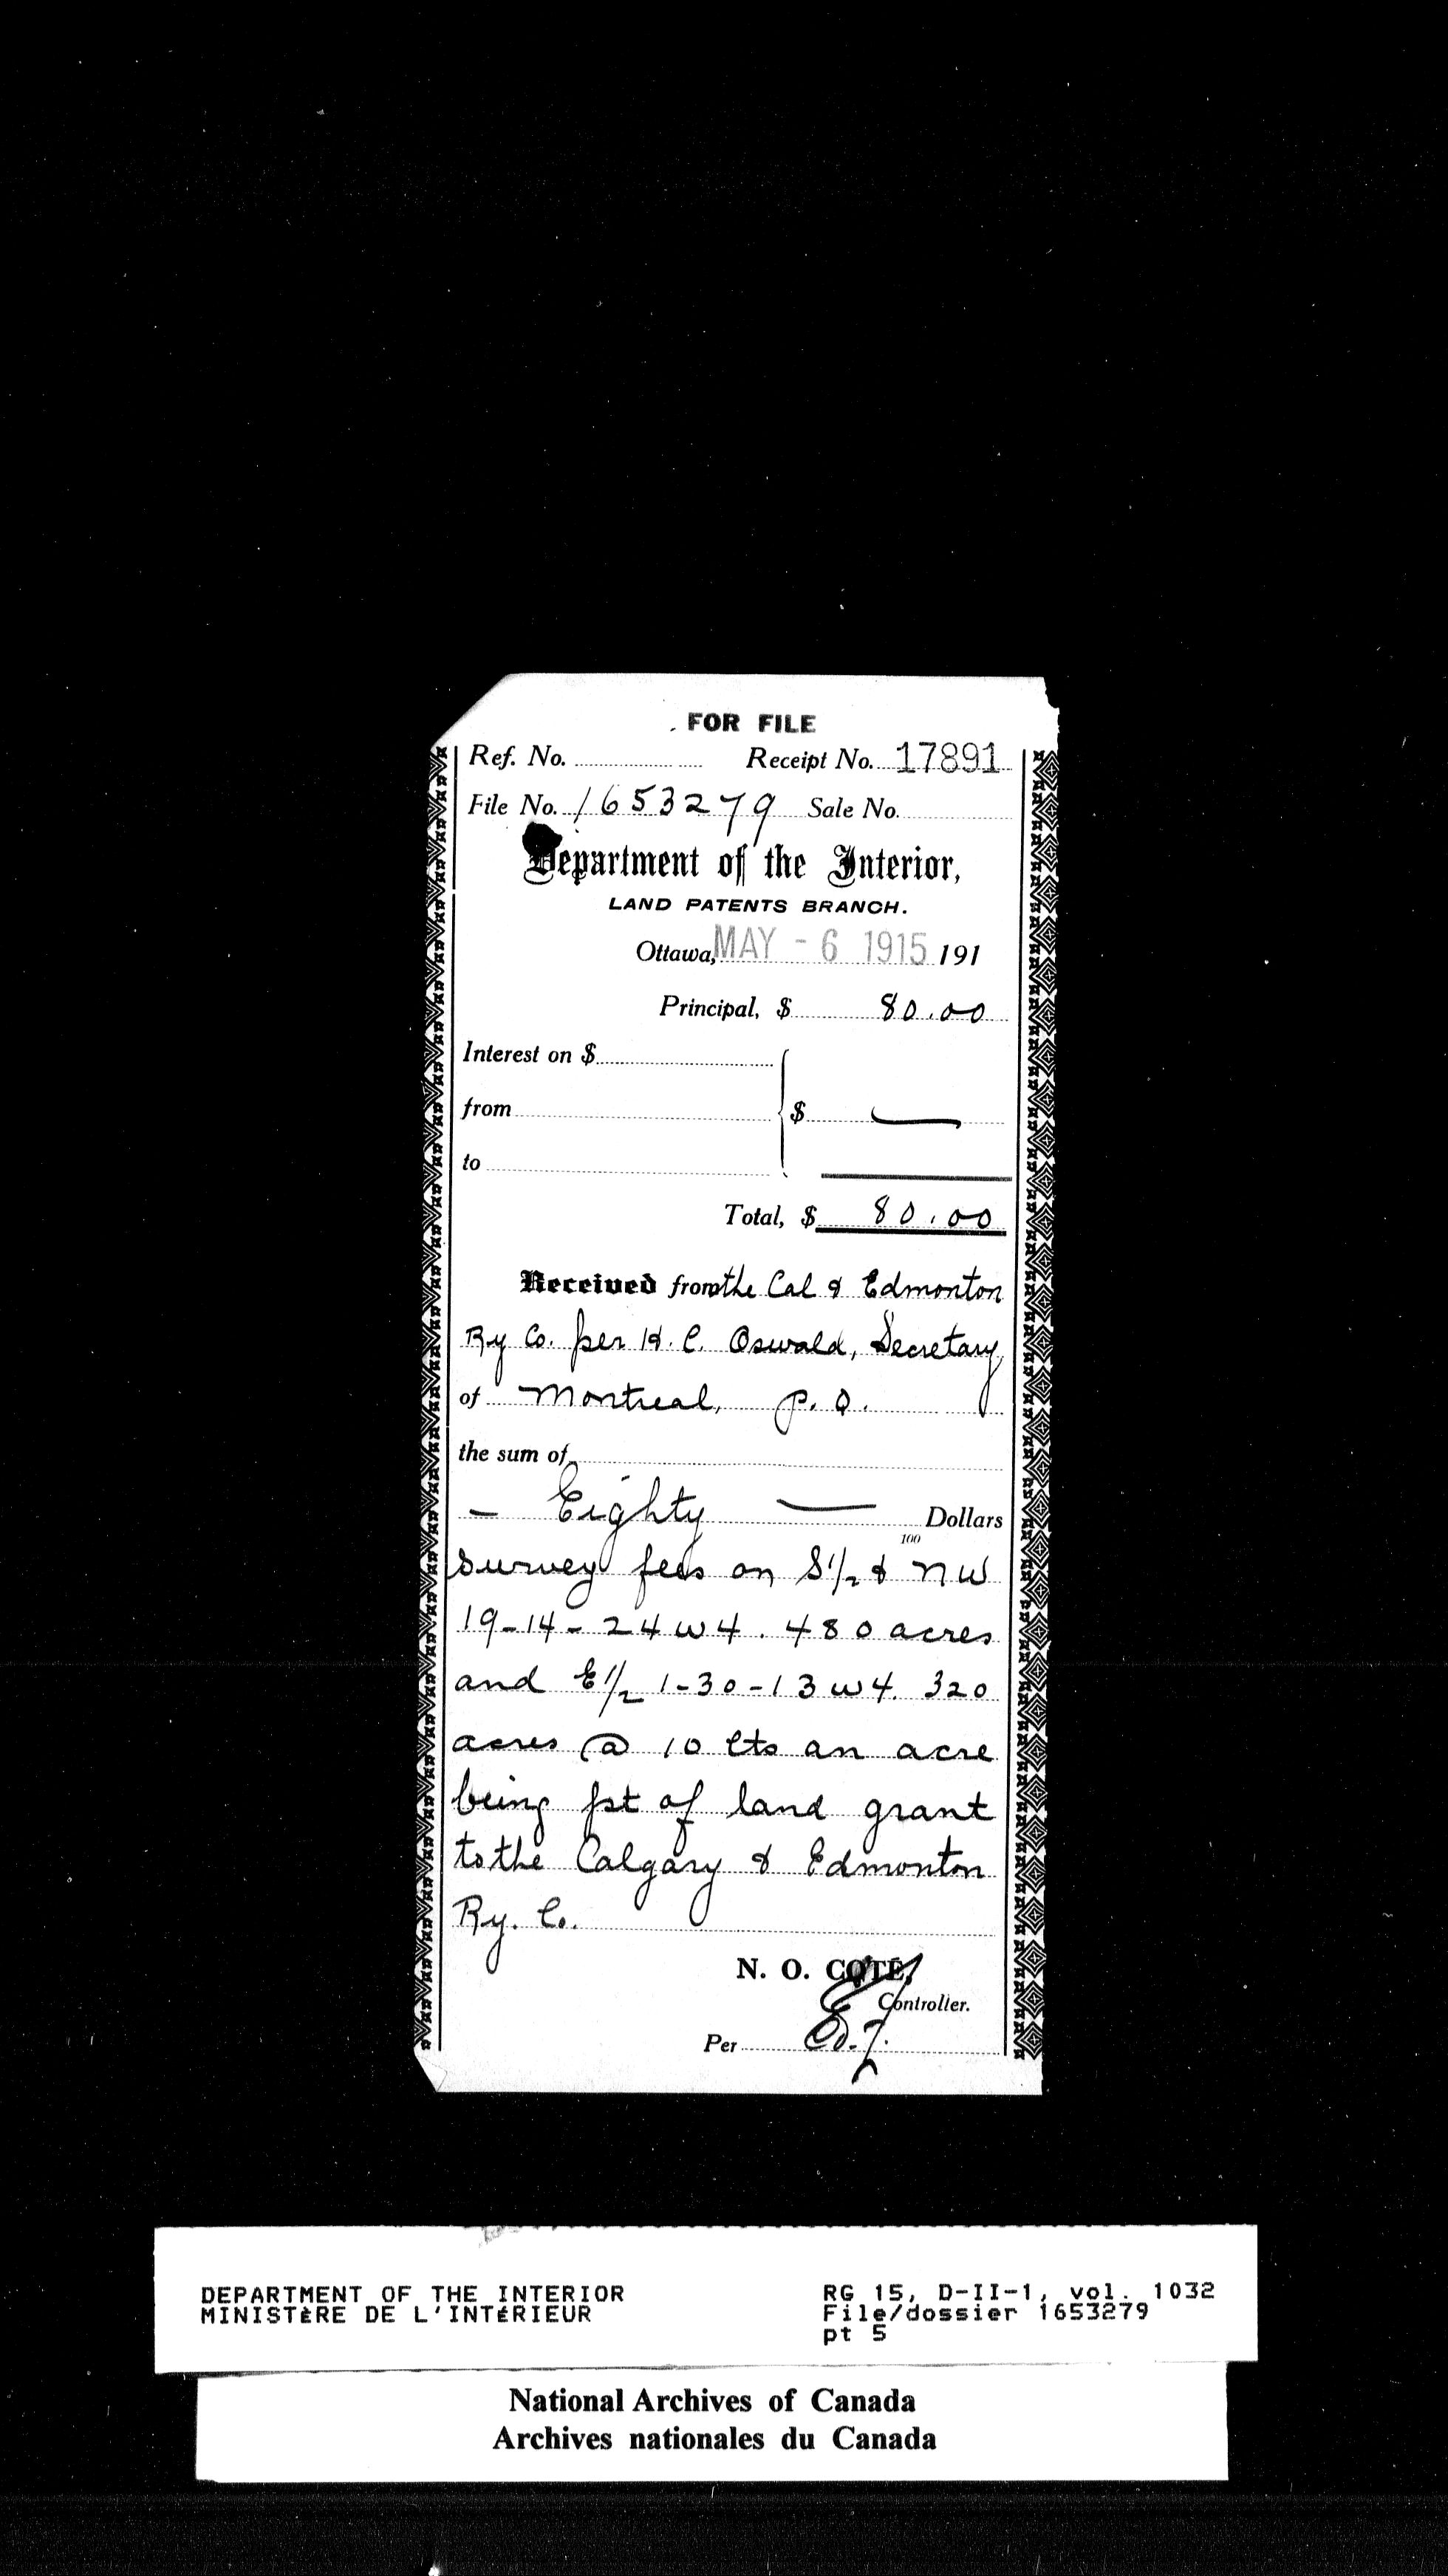 FOR FILE
Ref. No. Receipt No. 17891
File No. 1653279 Sale No.
Department of the Interior,
LAND PATENTS BRANCH.
Ottawa, MAY - 6 1915 191
Principal, $ 80.00
Interest on $
from $ —
to
Total, $ 80.00
Received from the Cal & Edmonton
Ry Co. per H. C. Oswald, Secretary
of Montreal, P. Q.
the sum of
— Eighty — Dollars
100
survey fees on S½ & NW
19-14-24 W4. 480 acres
and E½ 1-30-13 W4. 320
acres @ 10 Cts an acre
being pt of land grant
to the Calgary & Edmonton
Ry. Co.
N. O. COTÉ,
Controller.
Per
DEPARTMENT OF THE INTERIOR
MINISTÈRE DE L'INTÉRIEUR
RG 15, D-II-1, vol. 1032
File/dossier 1653279
pt 5
National Archives of Canada
Archives nationales du Canada